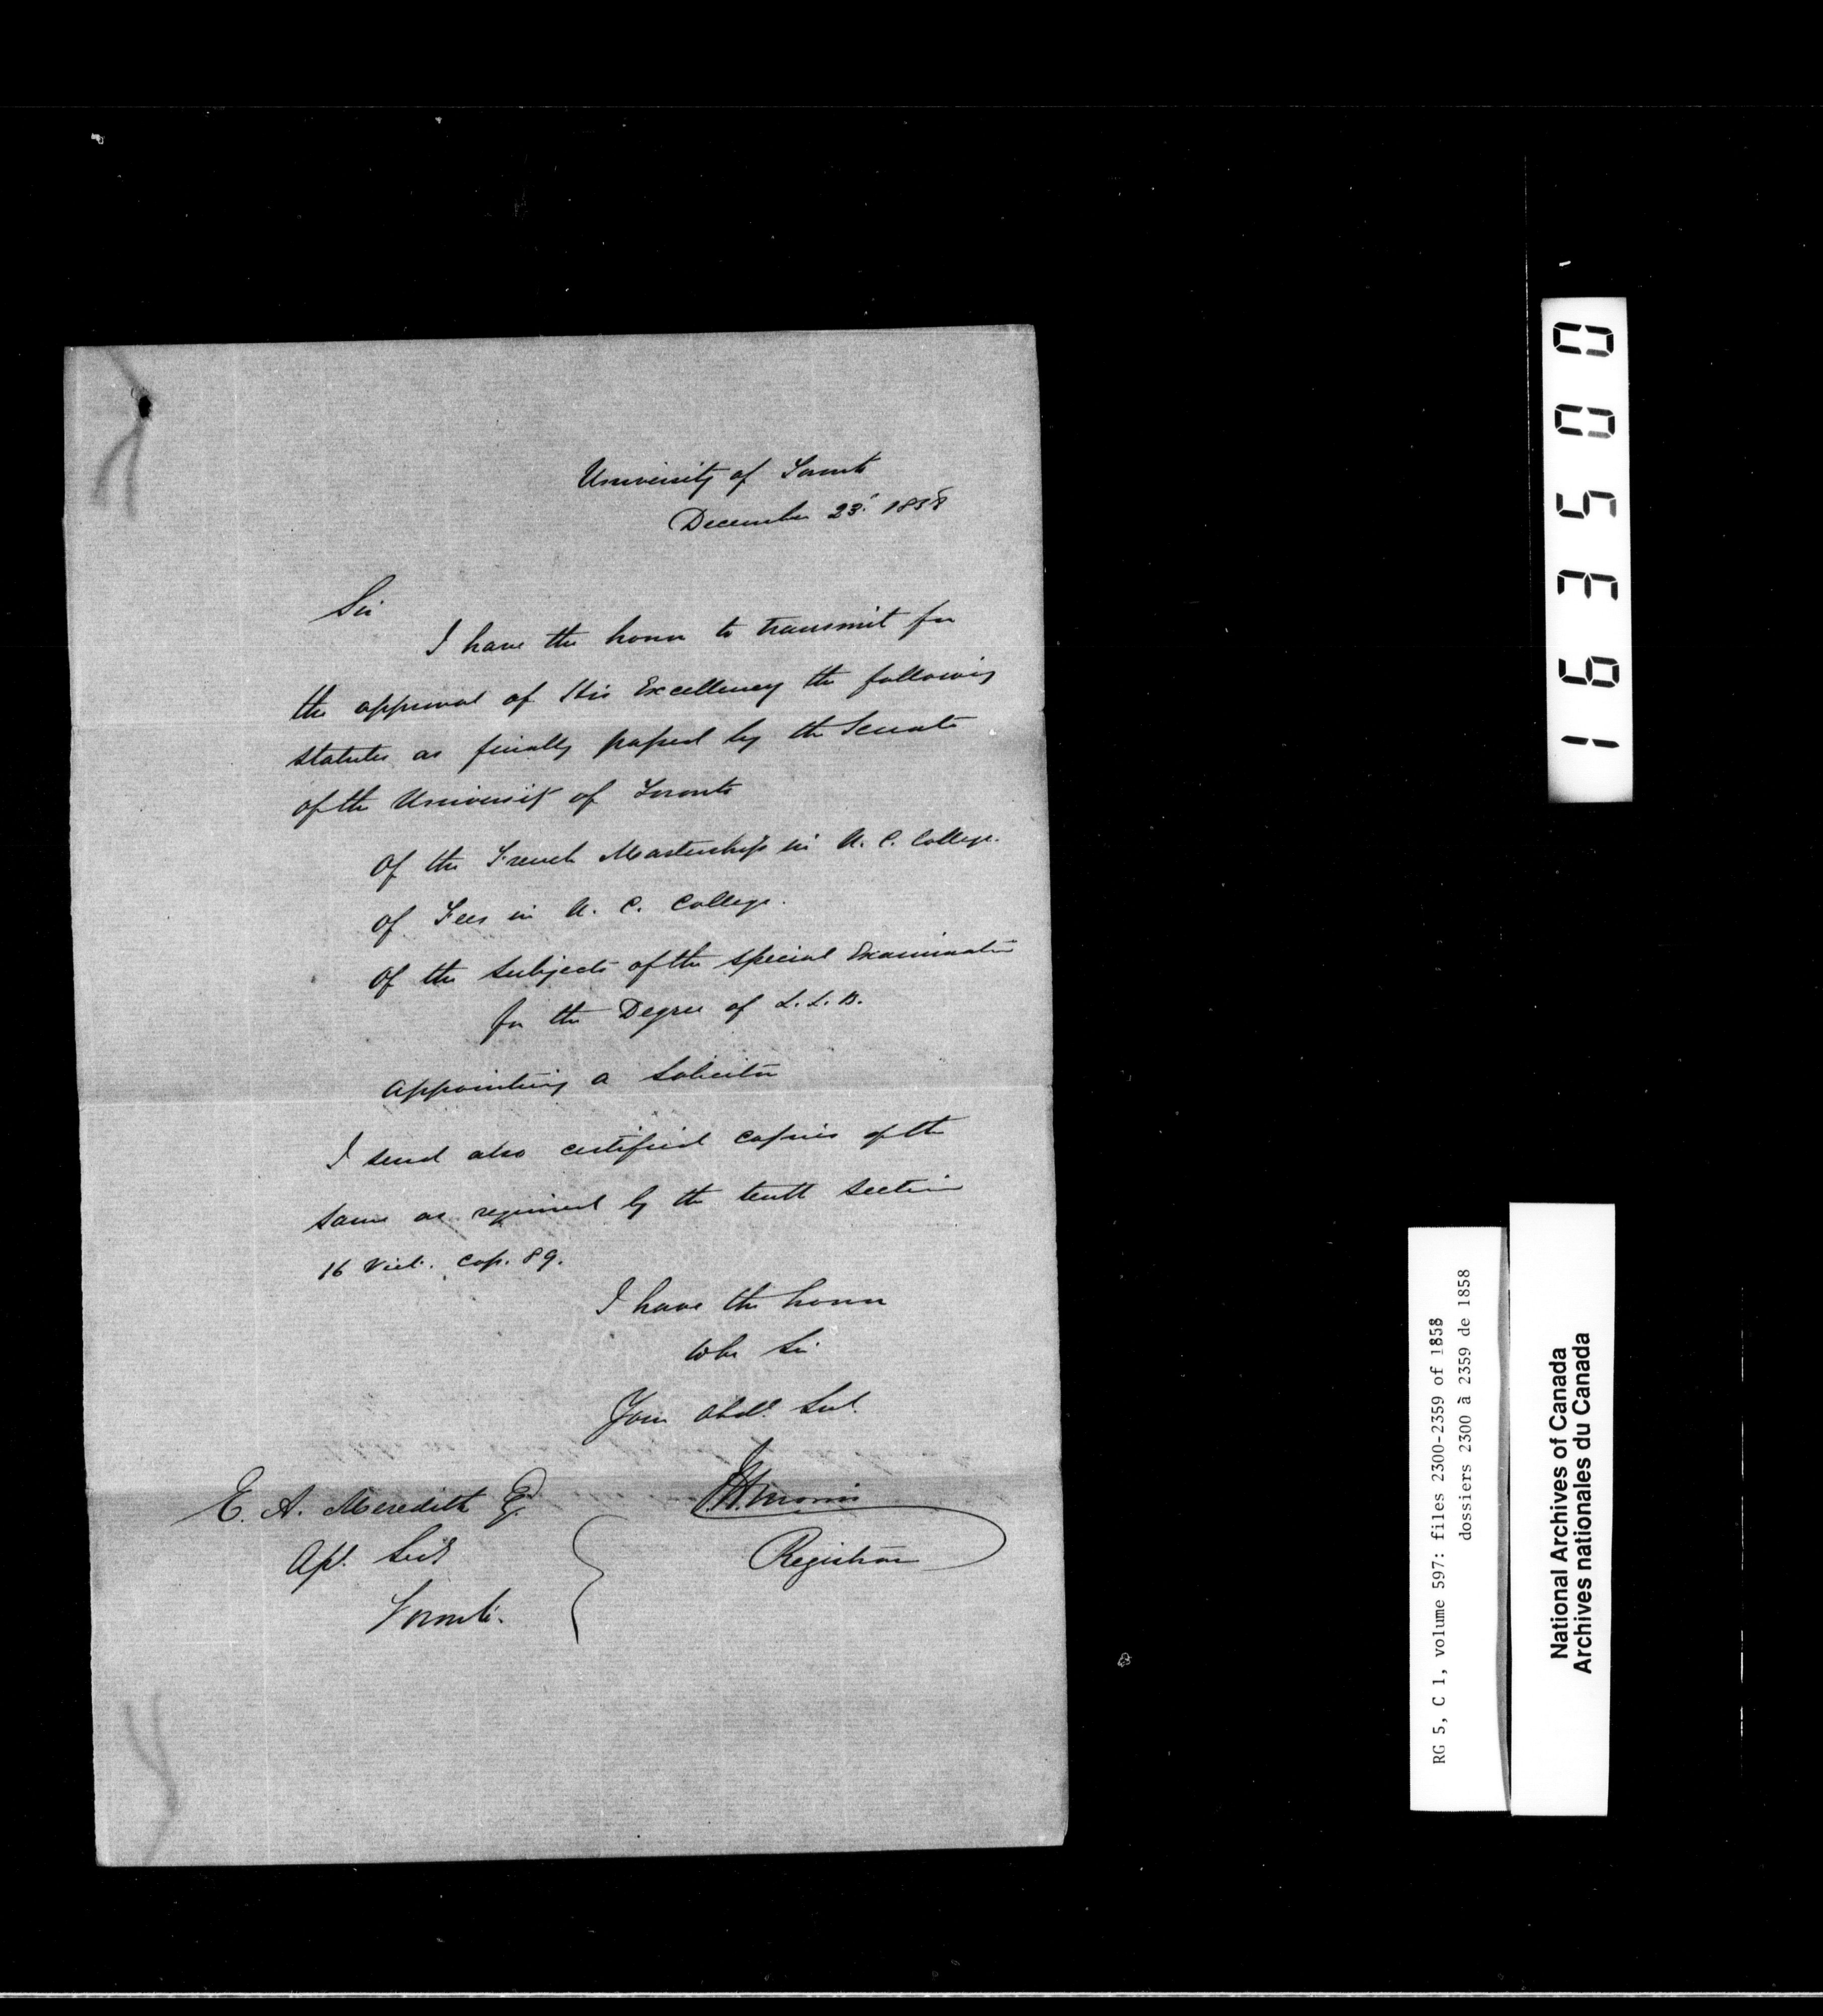 University of Toronto
December 23. 1858
Sir
I have the honor to transmit for
the approval of His Excellency the following
statutes as finally passed by the Senate
of the University of Toronto
Of the French Mastership in U. C. College.
Of Fees in U. C. College.
Of the subjects of the special Examination
for the Degree of L.L.B.
Appointing a Solicitor
I send also certified copies of the
same as required by the tenth section
16 Vict. cap. 89.
I have the honor
to be Sir
Your obdt. Svt.
Morris
Registrar
E. A. Meredith Esq.
Ast. Secy
Toronto.
163500
RG 5, C 1, volume 597: files 2300-2359 of 1858
dossiers 2300 à 2359 de 1858
National Archives of Canada
Archives nationales du Canada